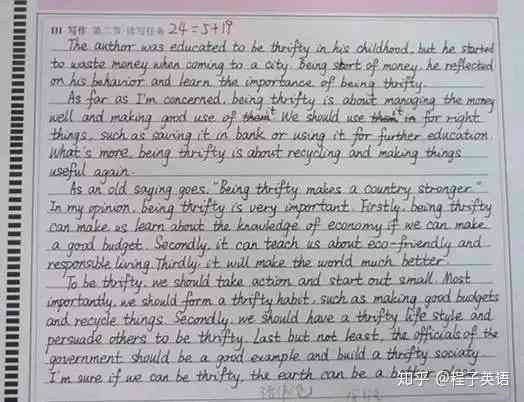 III 写作 第二节 读写任务 24=5+19
The author was educated to be thrifty in his childhood, but he started
to waste money when coming to a city. Being short of money, he reflected
on his behavior and learn the importance of being thrifty.
As far as I'm concerned, being thrifty is about managing the money
well and making good use of them it. We should use them in it for right
things, such as saving it in bank or using it for further education.
What's more, being thrifty is about recycling and making things
useful again.
As an old saying goes, "Being thrifty makes a country stronger."
In my opinion, being thrifty is very important. Firstly, being thrifty
can make us learn about the knowledge of economy if we can make
a good budget. Secondly, it can teach us about eco-friendly and
responsible living. Thirdly, it will make the world much better.
To be thrifty, we should take action and start out small. Most
importantly, we should form a thrifty habit, such as making good budgets
and recycle things. Secondly, we should have a thrifty life style and
persuade others to be thrifty. Last but not least, the officials of the
government should be a good example and build a thrifty sociaty.
I'm sure if we can be thrifty, the earth can be a better
知乎 @程子英语